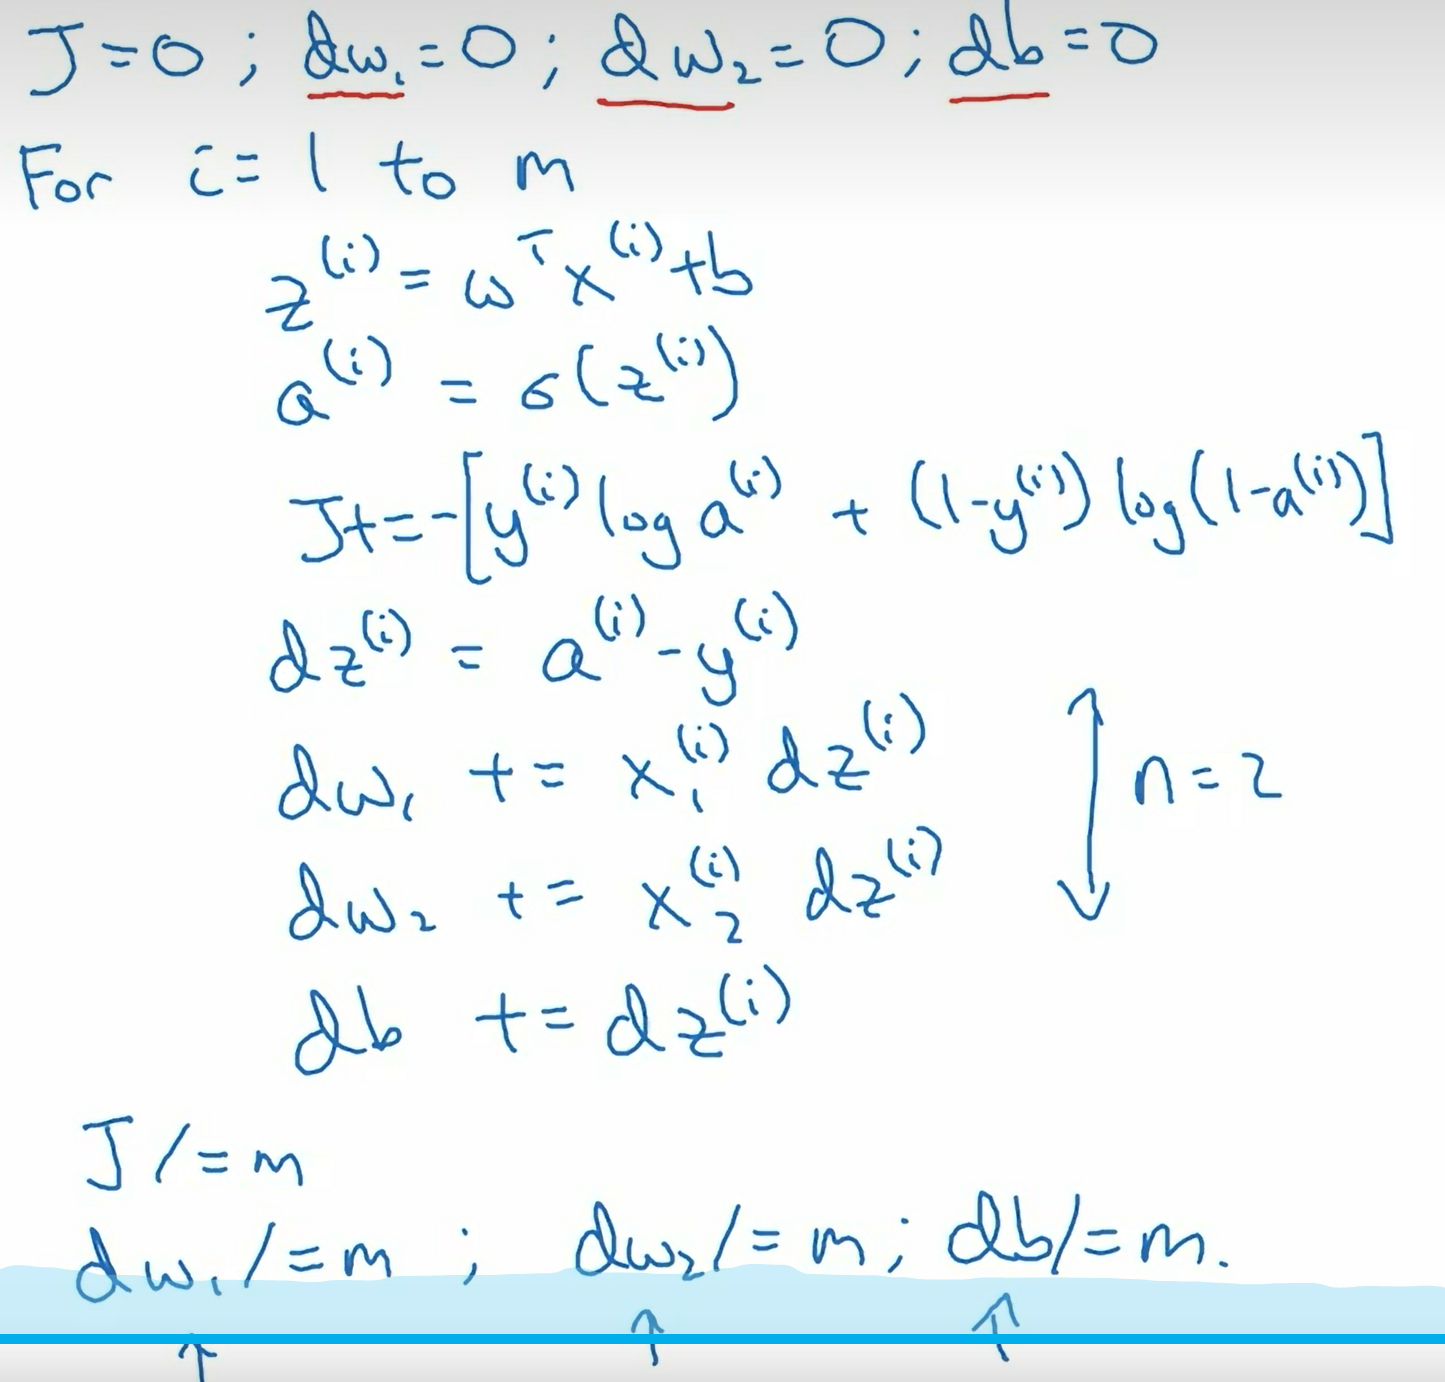 J=0; dw₁=0; dw₂=0; db=0
For i=1 to m
z⁽ⁱ⁾ = wᵀx⁽ⁱ⁾+b
a⁽ⁱ⁾ = σ(z⁽ⁱ⁾)
J+=-[y⁽ⁱ⁾ log a⁽ⁱ⁾ + (1-y⁽ⁱ⁾) log(1-a⁽ⁱ⁾)]
dz⁽ⁱ⁾ = a⁽ⁱ⁾-y⁽ⁱ⁾
dw₁ += x₁⁽ⁱ⁾ dz⁽ⁱ⁾
n=2
dw₂ += x₂⁽ⁱ⁾ dz⁽ⁱ⁾
db += dz⁽ⁱ⁾
J /=m
dw₁ /=m; dw₂/=m; db/=m.